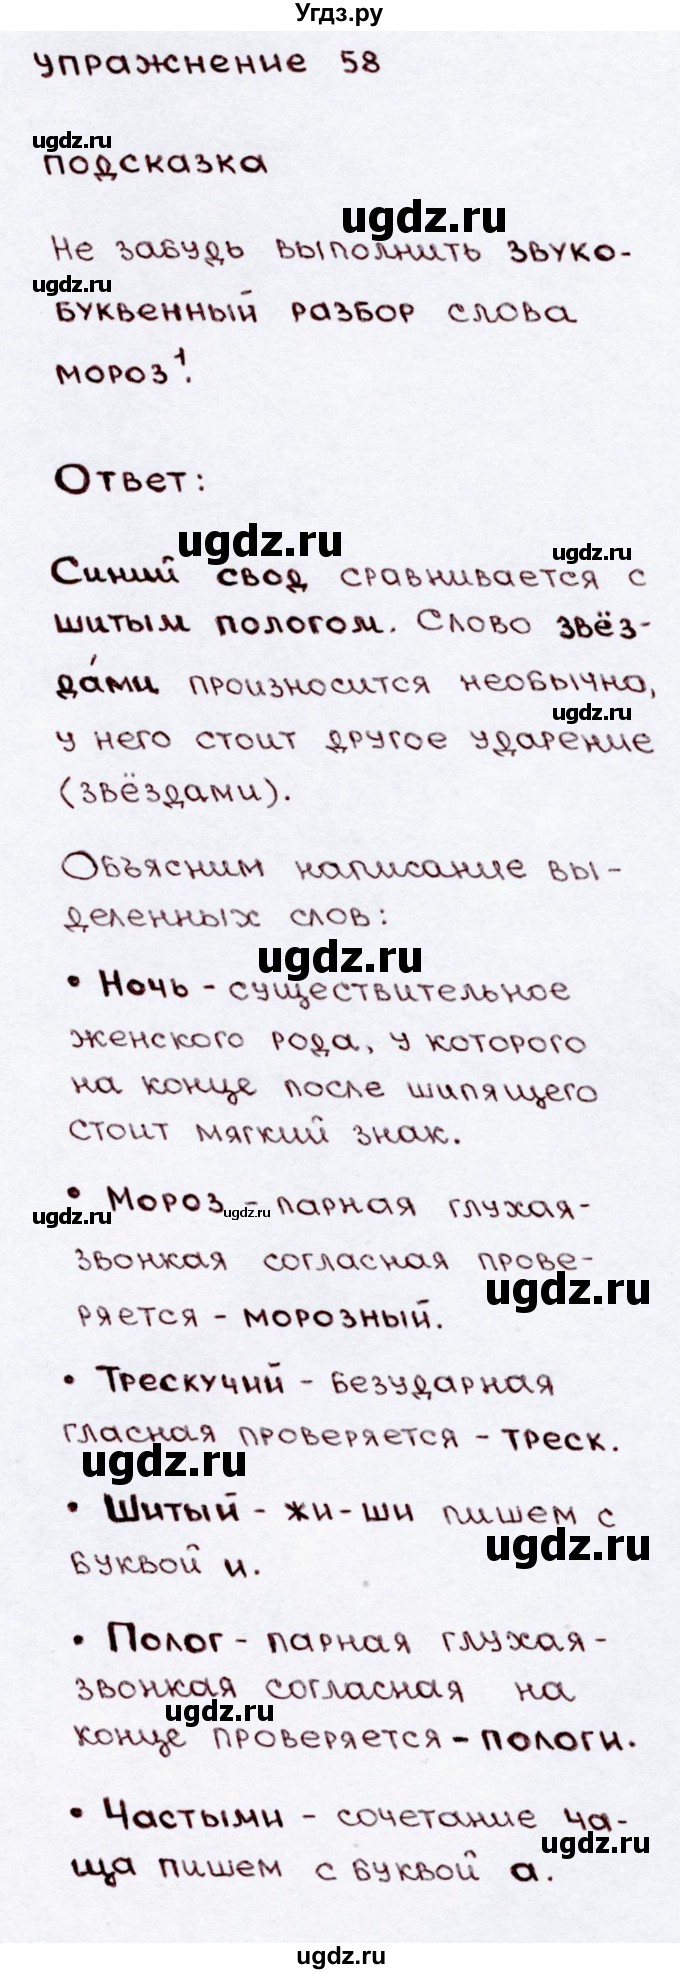 Угдз.ру
упражнение 58
ugdz.ru
подсказка
ugdz.ru
Не забудь выполнить звуко-
ugdz.ru
буквенный разбор слова
мороз¹.
Ответ:
ugdz.ru
ugdz.ru
Синий свод сравнивается с
шитым пологом. Слово звёз-
да́ми произносится необычно,
ugdz.ru
у него стоит другое ударение
(звёздами).
Объясним написание вы-
деленных слов:
ugdz.ru
• Ночь - существительное
женского рода, у которого
на конце после шипящего
стоит мягкий знак.
• Мороз - парная глухая-
ugdz.ru
ugdz.ru
звонкая согласная прове-
ugdz.ru
ряется - морозный.
• Трескучий - безударная
гласная проверяется - треск.
ugdz.ru
• Шитый - жи-ши пишем с
ugdz.ru
буквой и.
• Полог - парная глухая-
звонкая согласная на
ugdz.ru
конце проверяется - пологи.
• Частыми - сочетание ча-
ugdz.ru
ща пишем с буквой а.
ugdz.ru